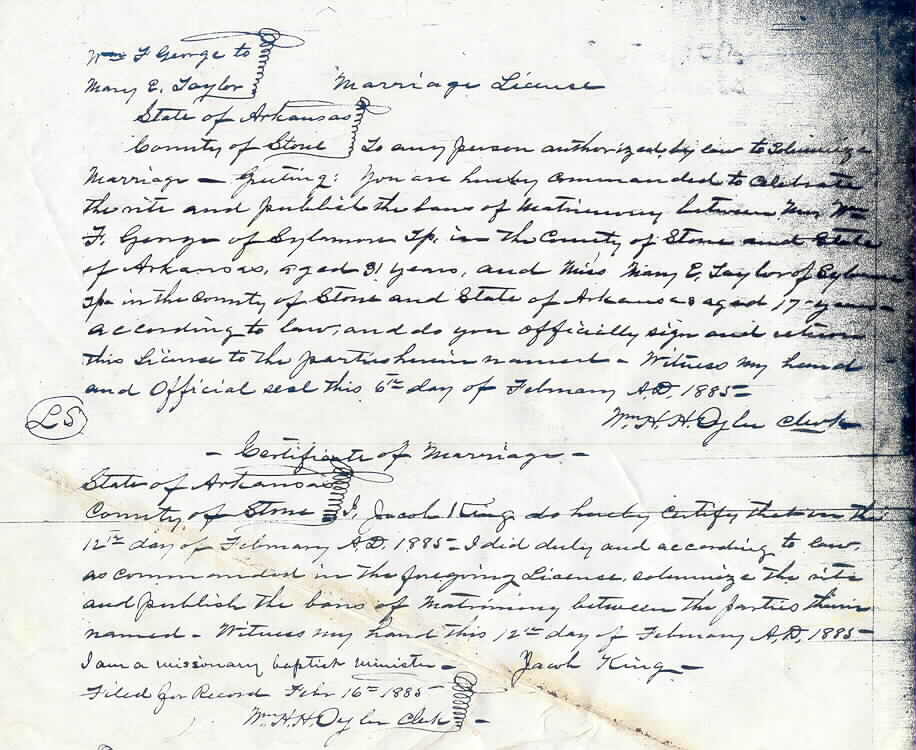 Wm F George to
Mary E. Taylor
Marriage License
State of Arkansas
County of Stone To any person authorized by law to Solemnize
Marriage — Greeting: You are hereby commanded to celebrate
the rite and publish the bans of Matrimony between Mr Wm
F. George of Sylamore Tp. in the County of Stone and State
of Arkansas, aged 31 years, and Miss Mary E. Taylor of Sylamore
Tp. in the County of Stone and State of Arkansas aged 17 years
according to law, and do you officially sign and return
this License to the parties herein named – Witness my hand
and Official seal this 6th day of February A.D. 1885–
LS
Wm H. H. Clerk
– Certificate of Marriage –
State of Arkansas
County of Stone I, Jacob King do hereby certify that on the
12th day of February A.D. 1885 – I did duly and according to law,
as commanded in the foregoing License, solemnize the rite
and publish the bans of Matrimony between the parties therein
named – Witness my hand this 12th day of February A.D. 1885–
I am a missionary baptist minister – Jacob King –
Filed for Record Febr 16th 1885–
Wm H. H. Clerk –